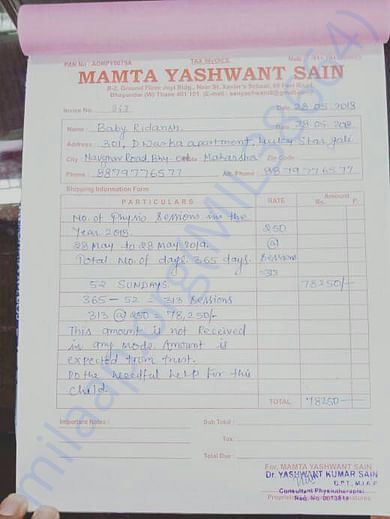 PAN No : AOMPY0075A
TAX INVOICE
Mob
MAMTA YASHWANT SAIN
B-2, Ground Floor Joyl Bldg., Near St. Xavier's School, 60 Feet Road
Bhayandar (W) Thane 401 101. (E-mail : sainyashwant8@gmail.com)
Invoice No.
Date 28.05.2018
Name : Baby Ridansh.
Date 28.05.2018
Address : 301, Dwarka apartment, Star gali
City Navghar Road, Maharashtra Zip Code
Phone : 8879776577 Alt. Phone : 8879776577
Shipping Information Form
PARTICULARS RATE Amount
Rs. P.
No. of Physio Sessions in the
Year 2018. 250
28 May to 28 May 2019. @
Total No. of days. 365 days. Sessions
313
52 SUNDAYS. 78250/-
365 - 52 = 313 Sessions
313 @ 250 = 78,250/-
This amount is not Received
in any mode. Amount is
expected from trust.
Do the needful help for this
child.
TOTAL 78250/-
Important Notes :
Sub Total :
Tax
Total Due :
For, MAMTA YASHWANT SAIN
Dr. YASHWANT KUMAR SAIN
Consultant Physiotherapist
milaap.org